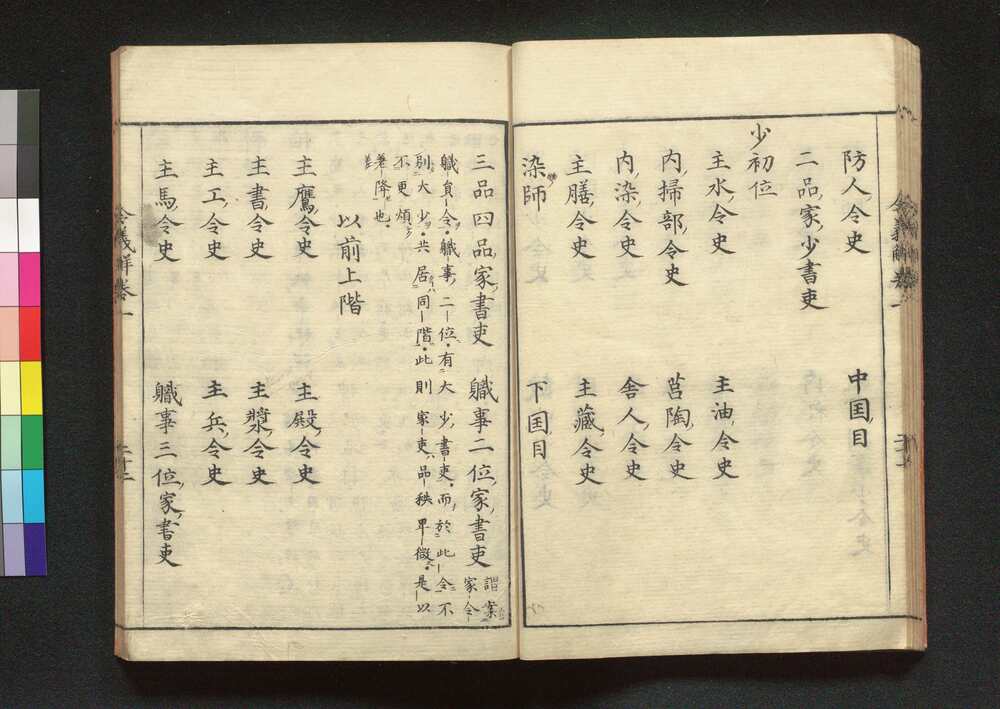 防人令史 中囯目
二品家少書吏
少初位
主水令史 主油令史
内掃部令史 筥陶令史
内染令史 舎人令史
主膳令史 主藏令史
染師 下囯目
三品四品家書吏 軄事二位家書吏 謂案
家令
軄員令。軄事二位。有大少書吏。而於此令不
別大少。共居同階。此則家吏品秩卑微。是以
不更煩
差降也。
以前上階
主鷹令史 主殿令史
主書令史 主漿令史
主工令史 主兵令史
主馬令史 軄事三位家書吏
令義解巻一